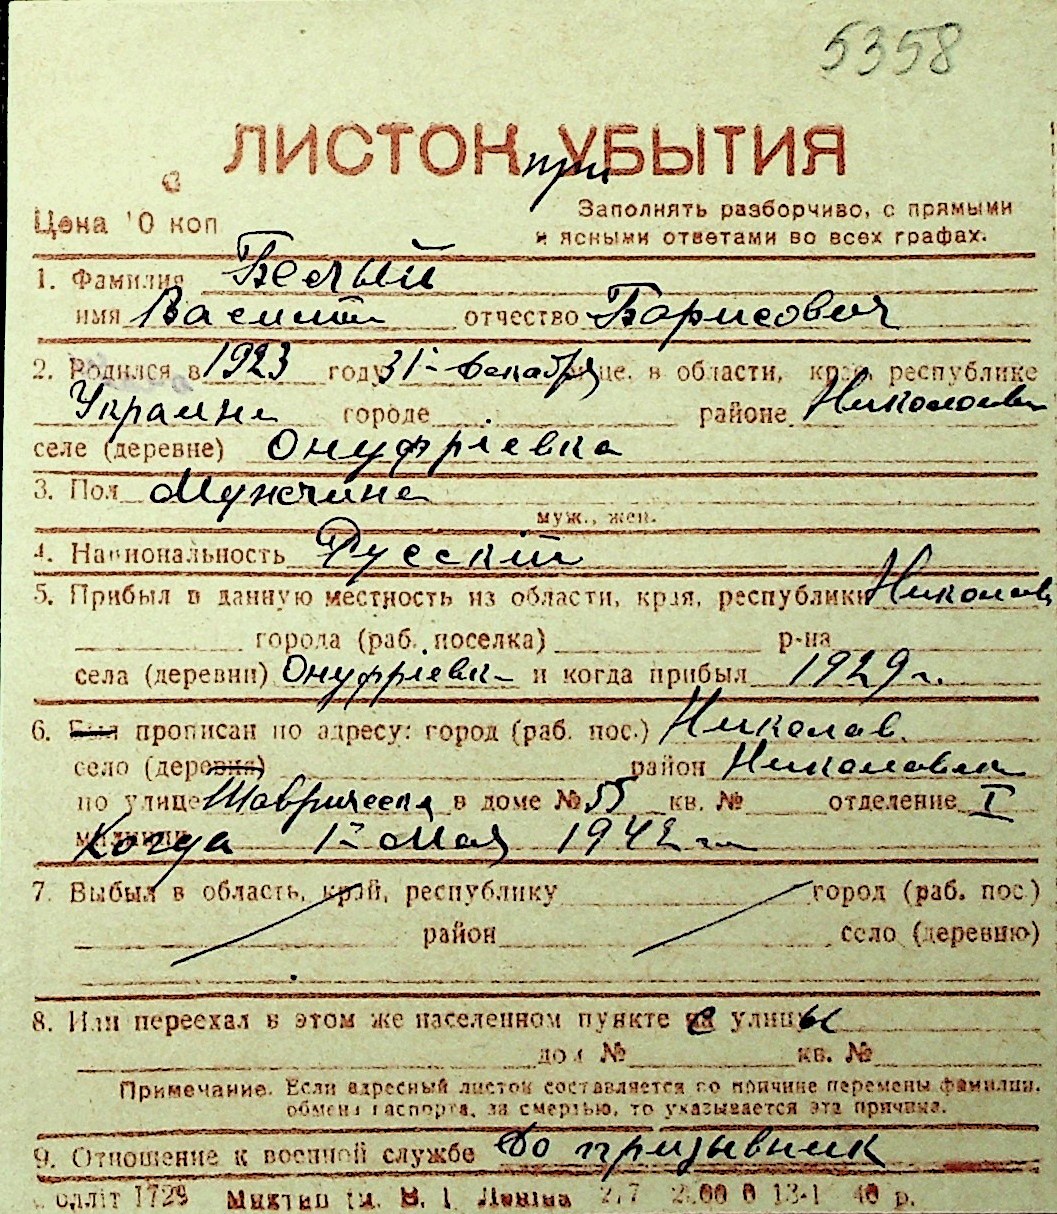 5358
ЛИСТОК при УБЫТИЯ
Цена 10 коп
Заполнять разборчиво, с прямыми
и ясными ответами во всех графах.
1. Фамилия Белый
имя Василий отчество Борисович
2. Родился в 1923 году 31 декабря це, в области, крае, республике
Украине городе районе
селе (деревне) Онуфріевка
3. Пол Мужчина
муж., жен.
4. Национальность Русскій
5. Прибыл в данную местность из области, края, республики Николаев
города (раб. поселка) р-на
села (деревни) Онуфріевка и когда прибыл 1929 г.
6. Был прописан по адресу: город (раб. пос.) Николаев
село (деревня) район
по улице Таврическая в доме № 55 кв. № отделение I
милиции Когда 1 Мая 1942 г.
7. Выбыл в область, край, республику город (раб. пос.)
район село (деревню)
8. Или переехал в этом же населенном пункте с улицы
дом № кв. №
Примечание. Если адресный листок составляется по причине перемены фамилии,
обмена паспорта, за смертью, то указывается эта причина.
9. Отношение к военной службе До призывник
Одліт 1729 Миктип ім. В. І. Леніна 40 р.